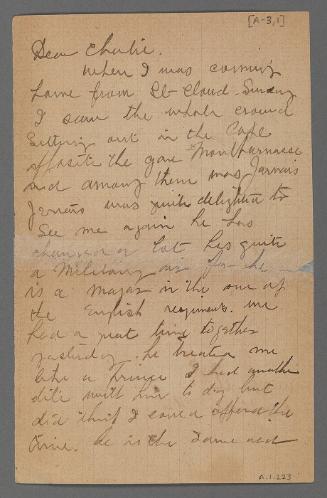 [A-3,1]
Dear Charlie.
When I was coming
home from St Cloud Sunday
I saw the whole crowd
Setting out in the Cafe
opposite the gare Montparnasse
and among them was Jarvais
Jervais was quite delighted to
See me again he has
changed a lot hes quite
a Military air for he
is a Major in the one of
the English regiments. we
had a great time together
yesterday. he treated me
like a Prince I had another
date with him to day but
did think I could afford the
time. he is the same and
A.1.223